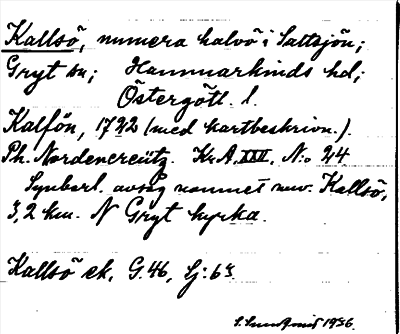 Kallsö, numera halvö i Sattsjön;
Gryt sn; Hammarkinds hd;
Östergötl. l.
Kalfön, 1722 (med kartbeskrivn.).
Ph. Nordencreütz. Kr.A. XXX. No 24
Synbarl. avsåg namnet nuv. Kallsö,
3,2 km. N Gryt kyrka.
Kallsö ek. G. 46, Sj: 63.
1936.